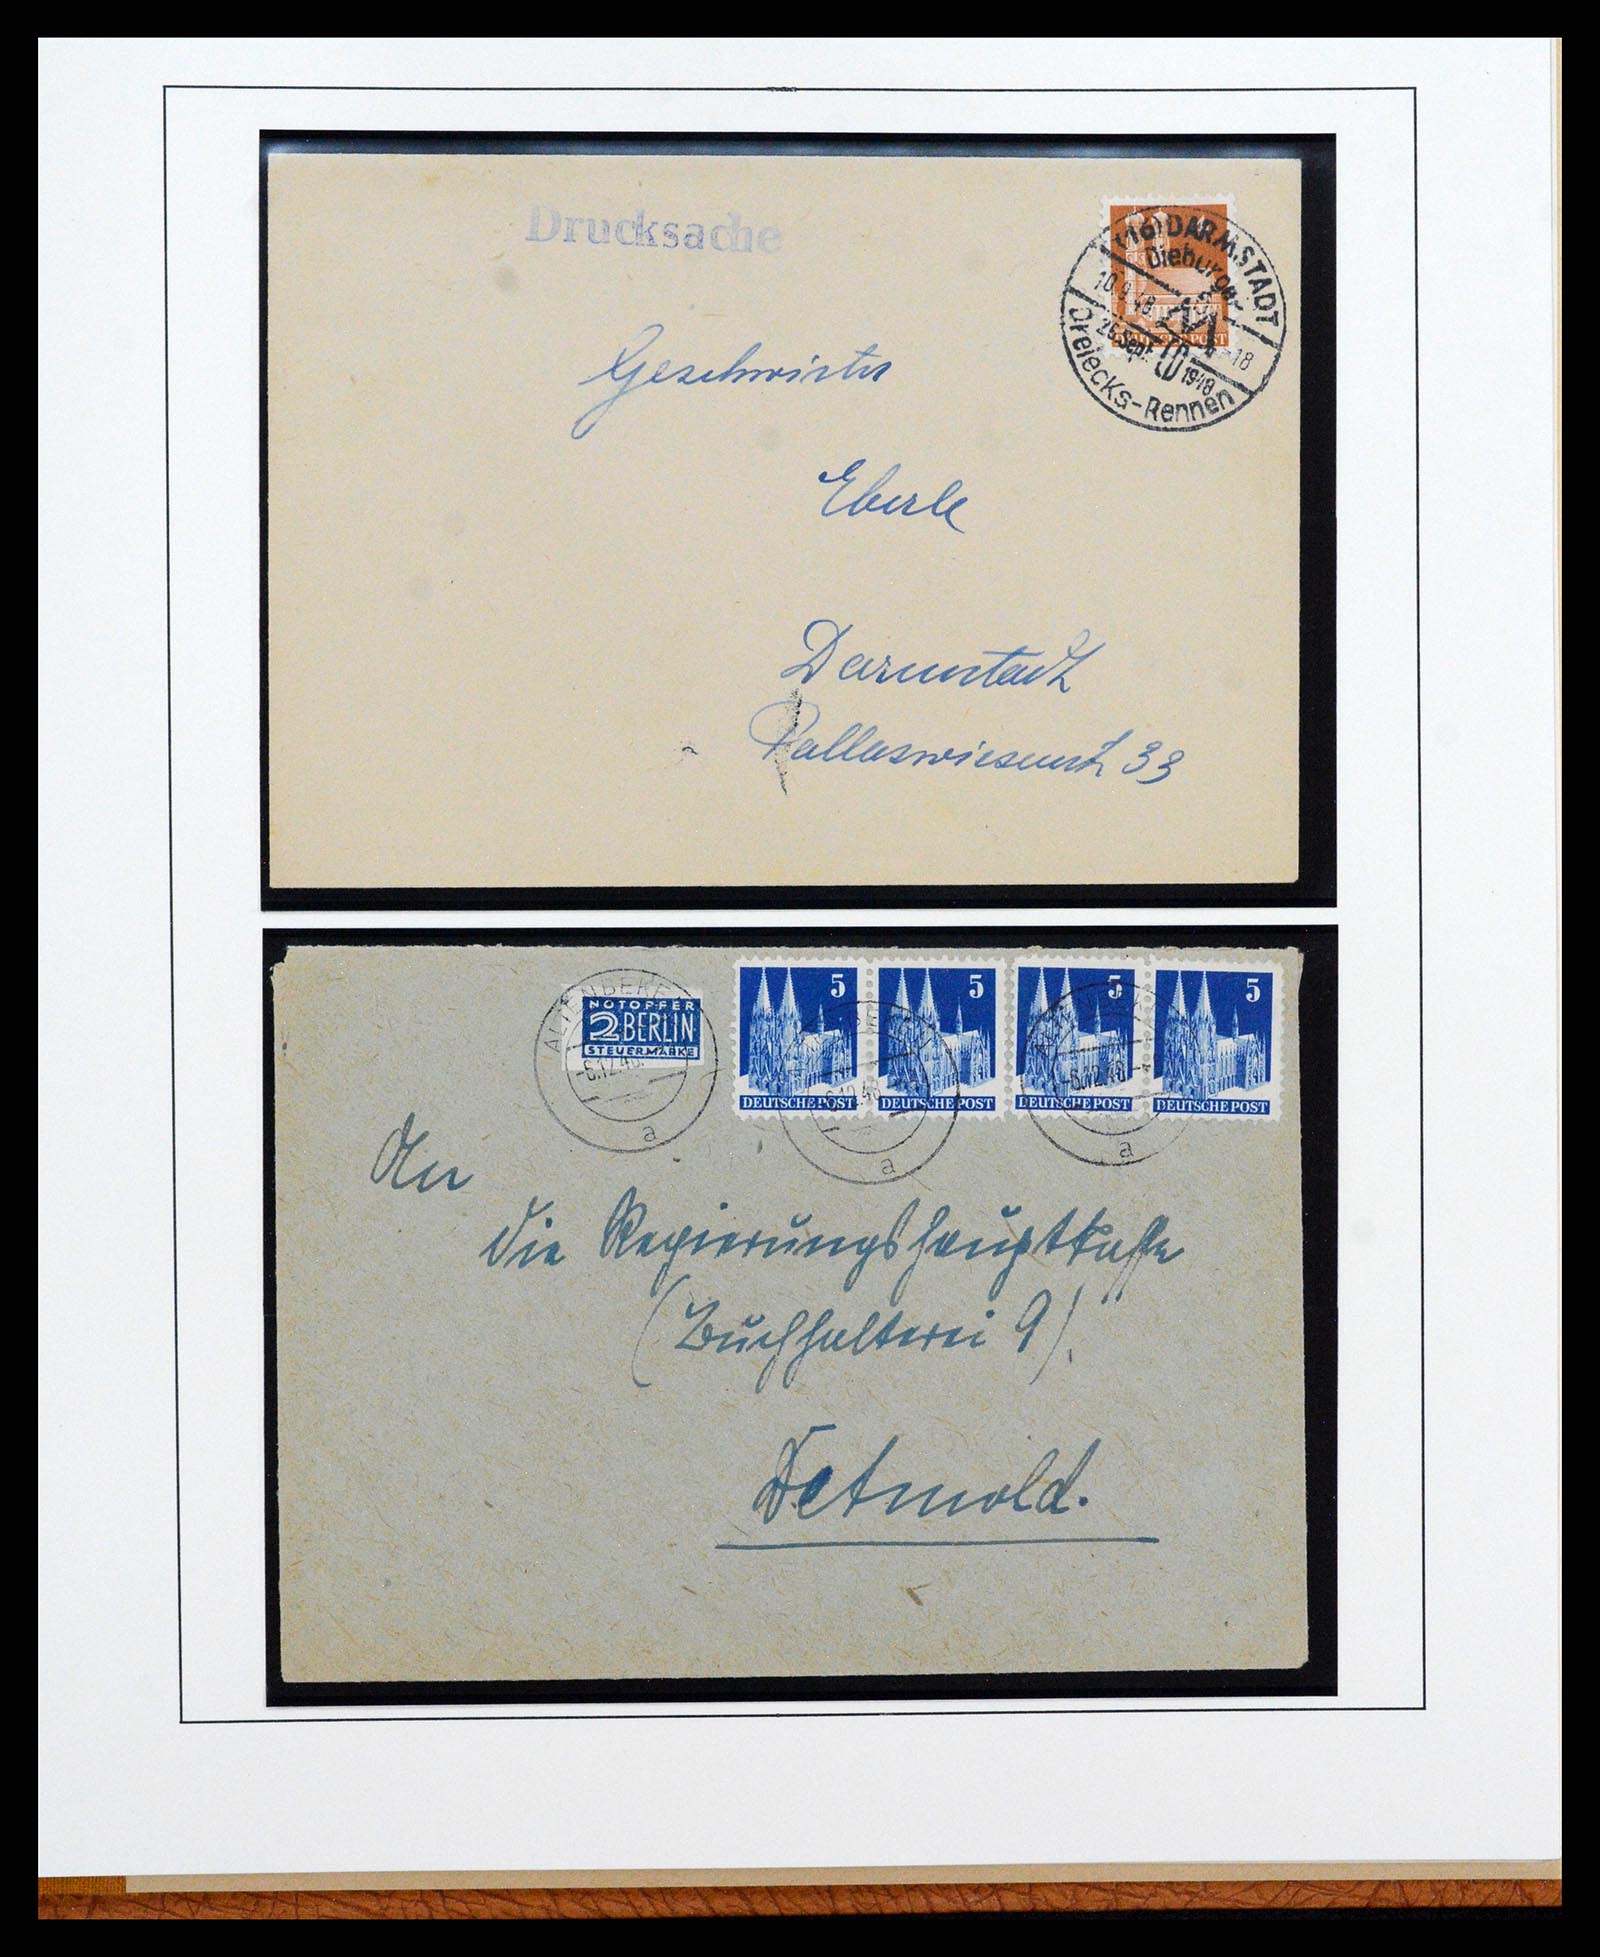 Drucksache
(16) DARMSTADT
Dieburger
10.9.48
-18
26. Sept. 1948
Dreiecks-Rennen
POST
Geschwister
Eberle
Darmstadt
Pallaswiesenstr 33
ALTENBEKEN
-6.12.48
a
NOTOPFER
2 BERLIN
STEUERMARKE
5 5 5 5
DEUTSCHE POST DEUTSCHE POST DEUTSCHE POST DEUTSCHE POST
-6.12.48
a
-6.12.48
a
An
die Regierungshauptkasse
(Buchhalterei 9)
Detmold.